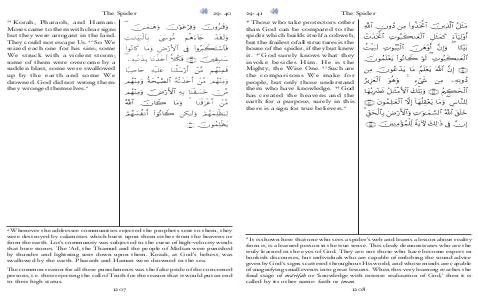 The Spider
29: 40
39 Korah, Pharaoh, and Haman:
Moses came to them with clear signs
but they were arrogant in the land.
They could not escape Us. 40 So We
seized each one for his sins; some
We struck with a violent storm;
some of them were overcome by a
sudden blast; some were swallowed
up by the earth and some We
drowned. God did not wrong them;
they wronged themselves.a
وَقَٰرُونَ وَفِرْعَوْنَ وَهَٰمَٰنَ
وَلَقَدْ جَآءَهُم مُّوسَىٰ بِٱلْبَيِّنَٰتِ
فَٱسْتَكْبَرُوا۟ فِى ٱلْأَرْضِ وَمَا كَانُوا۟
سَٰبِقِينَ فَكُلًّا أَخَذْنَا بِذَنۢبِهِۦ
فَمِنْهُم مَّنْ أَرْسَلْنَا عَلَيْهِ حَاصِبًا
وَمِنْهُم مَّنْ أَخَذَتْهُ ٱلصَّيْحَةُ وَمِنْهُم
مَّنْ خَسَفْنَا بِهِ ٱلْأَرْضَ وَمِنْهُم
مَّنْ أَغْرَقْنَا وَمَا كَانَ ٱللَّهُ
لِيَظْلِمَهُمْ وَلَٰكِن كَانُوٓا۟ أَنفُسَهُمْ
يَظْلِمُونَ
a Whenever the addressee communities rejected the prophets sent to them, they
were destroyed by calamities which burst upon them either from the heavens or
from the earth. Lot's community was subjected to the curse of high-velocity winds
that bore stones. The 'Ad, the Thamud and the people of Midian were punished
by thunder and lightning sent down upon them. Korah, at God's behest, was
swallowed by the earth. Pharaoh and Haman were drowned in the sea.
The common reason for all these punishments was the false pride of the concerned
persons, i.e. their rejecting the call of Truth for the reason that it would put an end
to their high status.
1107
29: 41
The Spider
41 Those who take protectors other
than God can be compared to the
spider which builds itself a cobweb,
but the frailest of all structures is the
house of the spider, if they but knew
it. 42 God surely knows what they
invoke besides Him. He is the
Mighty, the Wise One. 43 Such are
the comparisons We make for
people, but only those understand
them who have knowledge. 44 God
has created the heavens and the
earth for a purpose; surely in this
there is a sign for true believers.a
مَثَلُ ٱلَّذِينَ ٱتَّخَذُوا۟ مِن دُونِ ٱللَّهِ
أَوْلِيَآءَ كَمَثَلِ ٱلْعَنكَبُوتِ ٱتَّخَذَتْ
بَيْتًا وَإِنَّ أَوْهَنَ ٱلْبُيُوتِ لَبَيْتُ
ٱلْعَنكَبُوتِ لَوْ كَانُوا۟ يَعْلَمُونَ
إِنَّ ٱللَّهَ يَعْلَمُ مَا يَدْعُونَ مِن
دُونِهِۦ مِن شَىْءٍ وَهُوَ ٱلْعَزِيزُ
ٱلْحَكِيمُ وَتِلْكَ ٱلْأَمْثَٰلُ نَضْرِبُهَا
لِلنَّاسِ وَمَا يَعْقِلُهَآ إِلَّا ٱلْعَٰلِمُونَ
خَلَقَ ٱللَّهُ ٱلسَّمَٰوَٰتِ وَٱلْأَرْضَ بِٱلْحَقِّ
إِنَّ فِى ذَٰلِكَ لَءَايَةً لِّلْمُؤْمِنِينَ
a It is shown here that one who sees a spider's web and learns a lesson about reality
from it, is a learned person in the true sense. This clearly demonstrates who are the
truly learned in the eyes of God. They are not those who have become expert in
bookish discourses, but individuals who are capable of imbibing the sound advice
given by God's signs scattered throughout His world, and whose minds are capable
of magnifying small events into great lessons. When this very learning reaches the
final stage of ma'rifah or 'knowledge with intense realization of God,' then it is
called by its other name: faith or iman.
1108